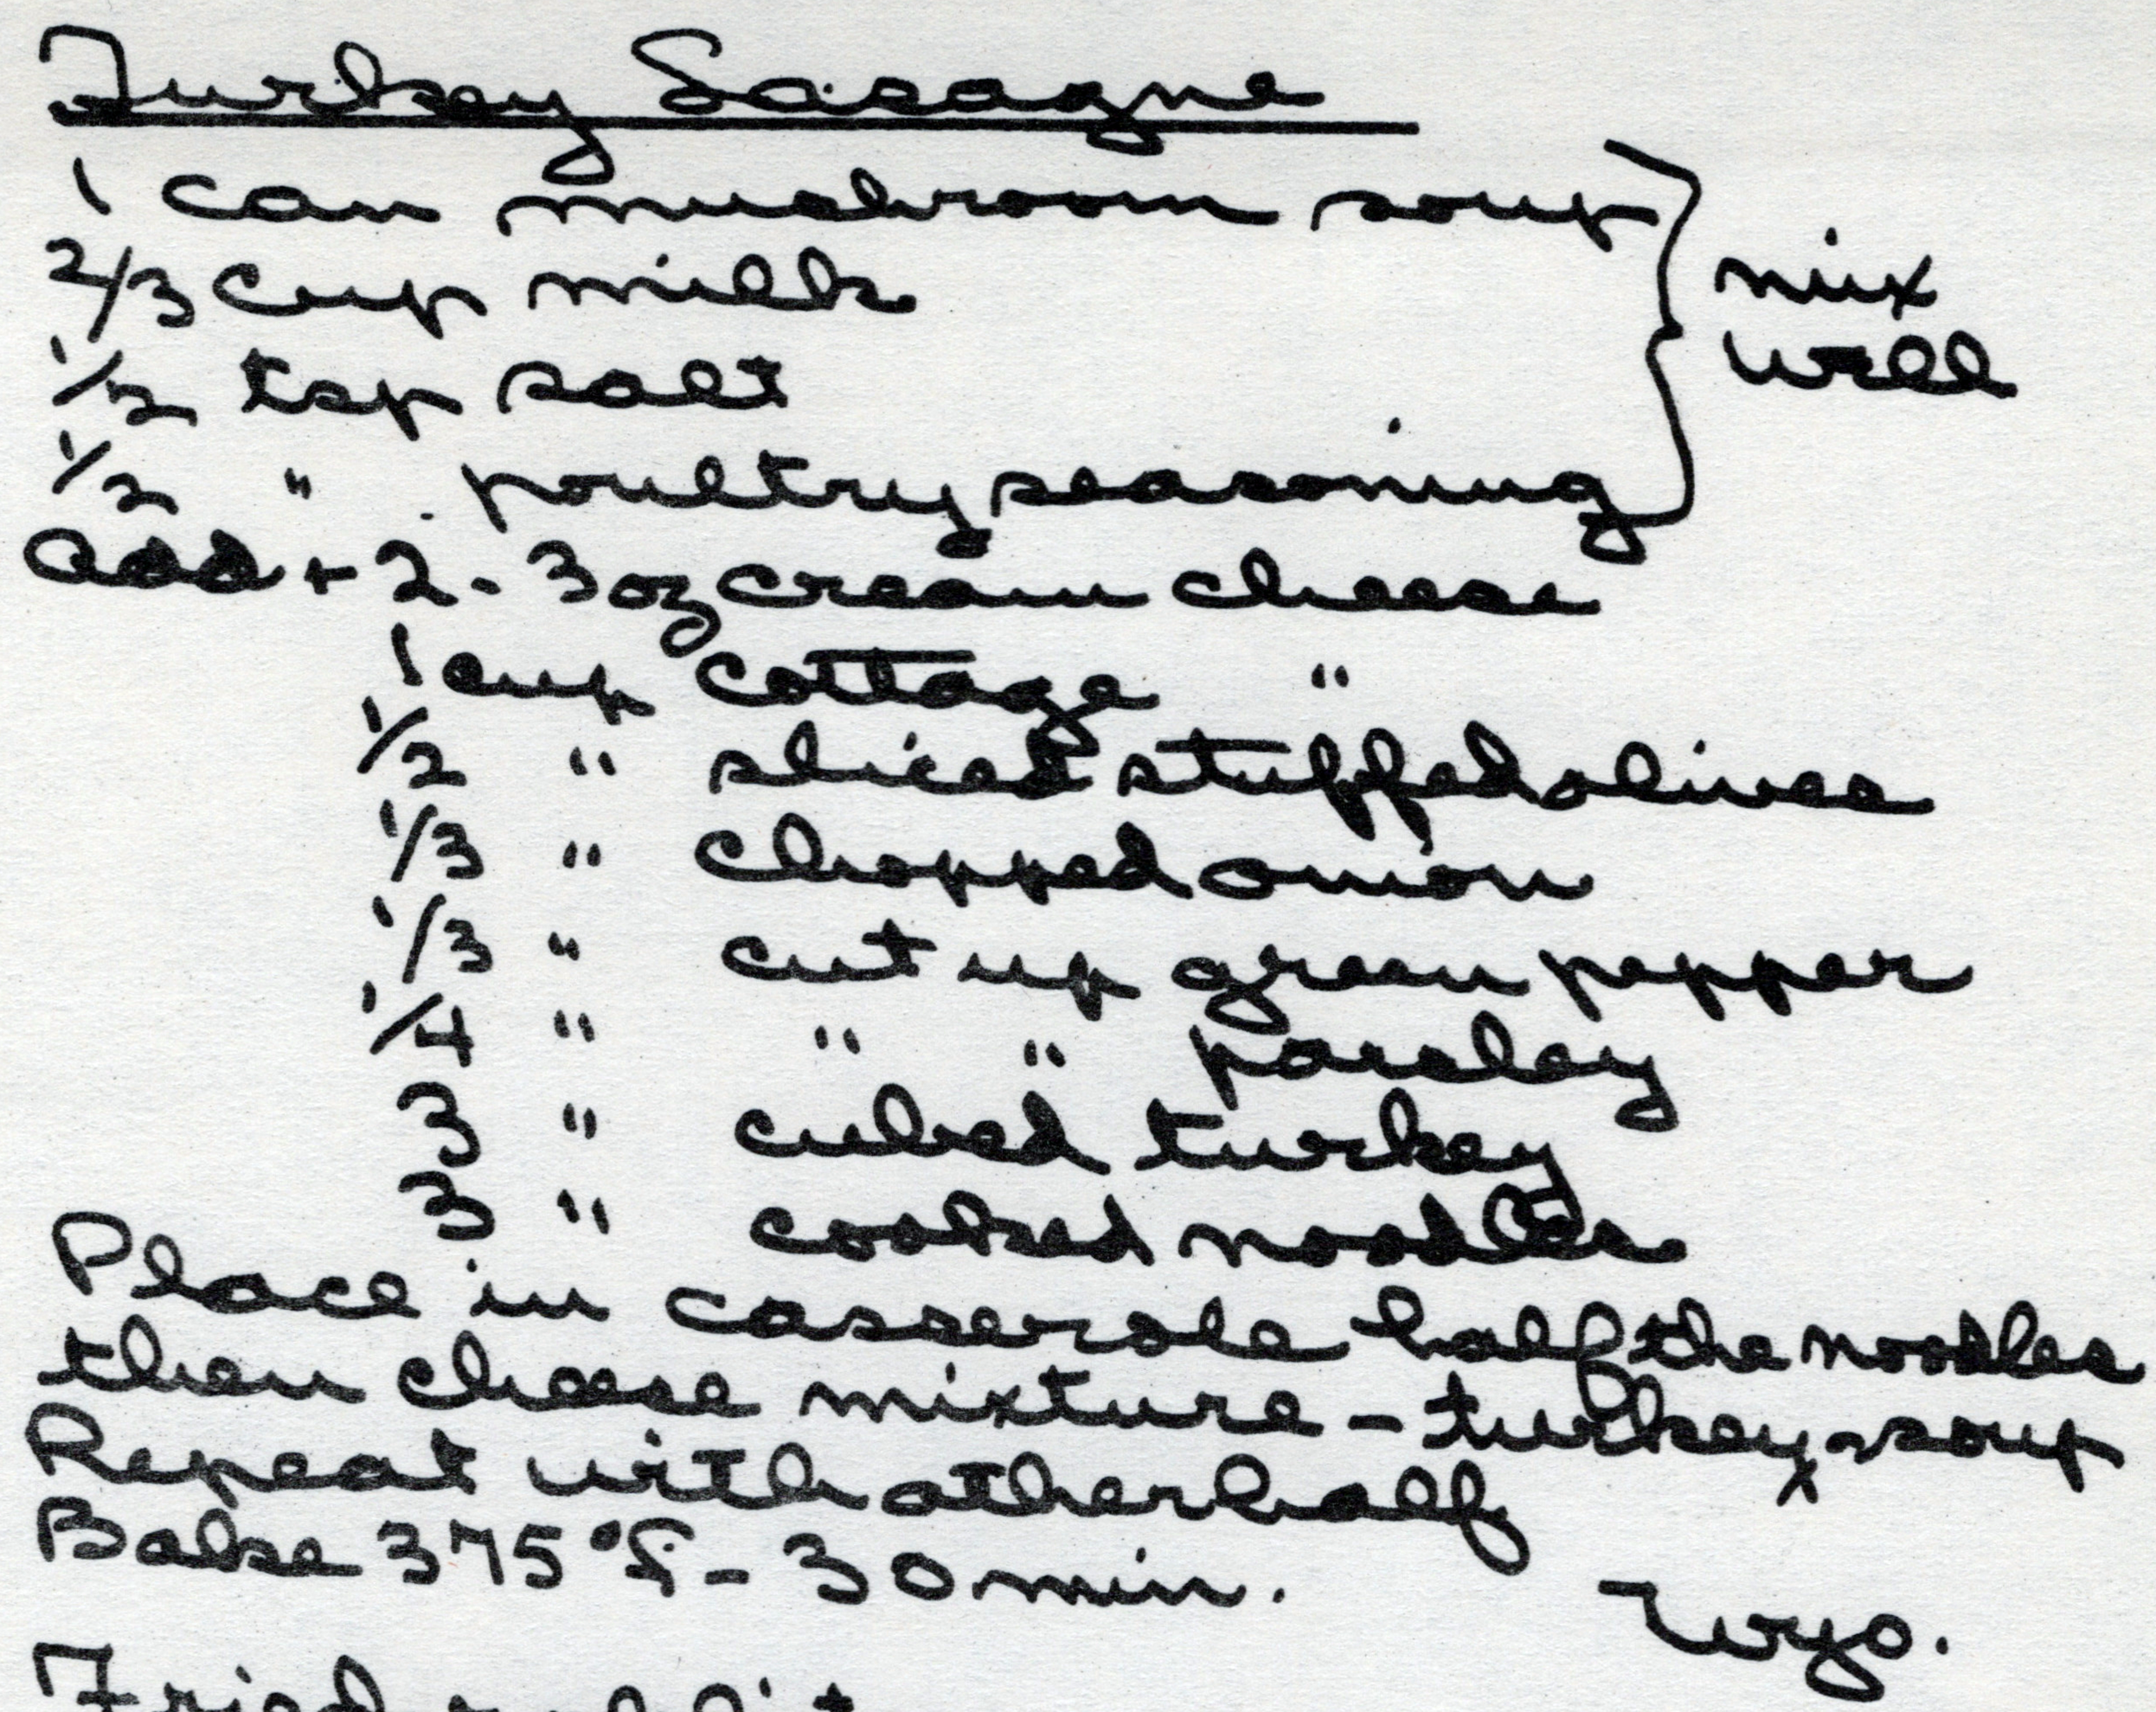 Turkey Lasagne
1 can mushroom soup
2/3 cup milk
mix
well
1/2 tsp salt
1/2 " poultry seasoning
add + 2 - 3 oz cream cheese
1 cup cottage "
1/2 " sliced stuffed olives
1/3 " chopped onion
1/3 " cut up green pepper
1/4 " " " parsley
3 " cubed turkey
3 " cooked noodles
Place in casserole half the noodles
then cheese mixture - turkey - soup
Repeat with other half
Bake 375°F - 30 min.
Wyo.
Fried rabbit